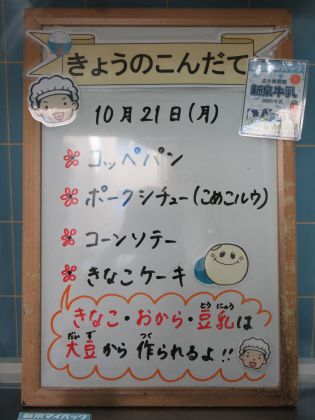 きょうのこんだて
10月21日(月)
コッペパン
ポークシチュー(こめこルウ)
コーンソテー
きなこケーキ
きなこ・おから・豆乳は
とう にゅう
大豆から 作られるよ!!
だい ず つく
新泉牛乳